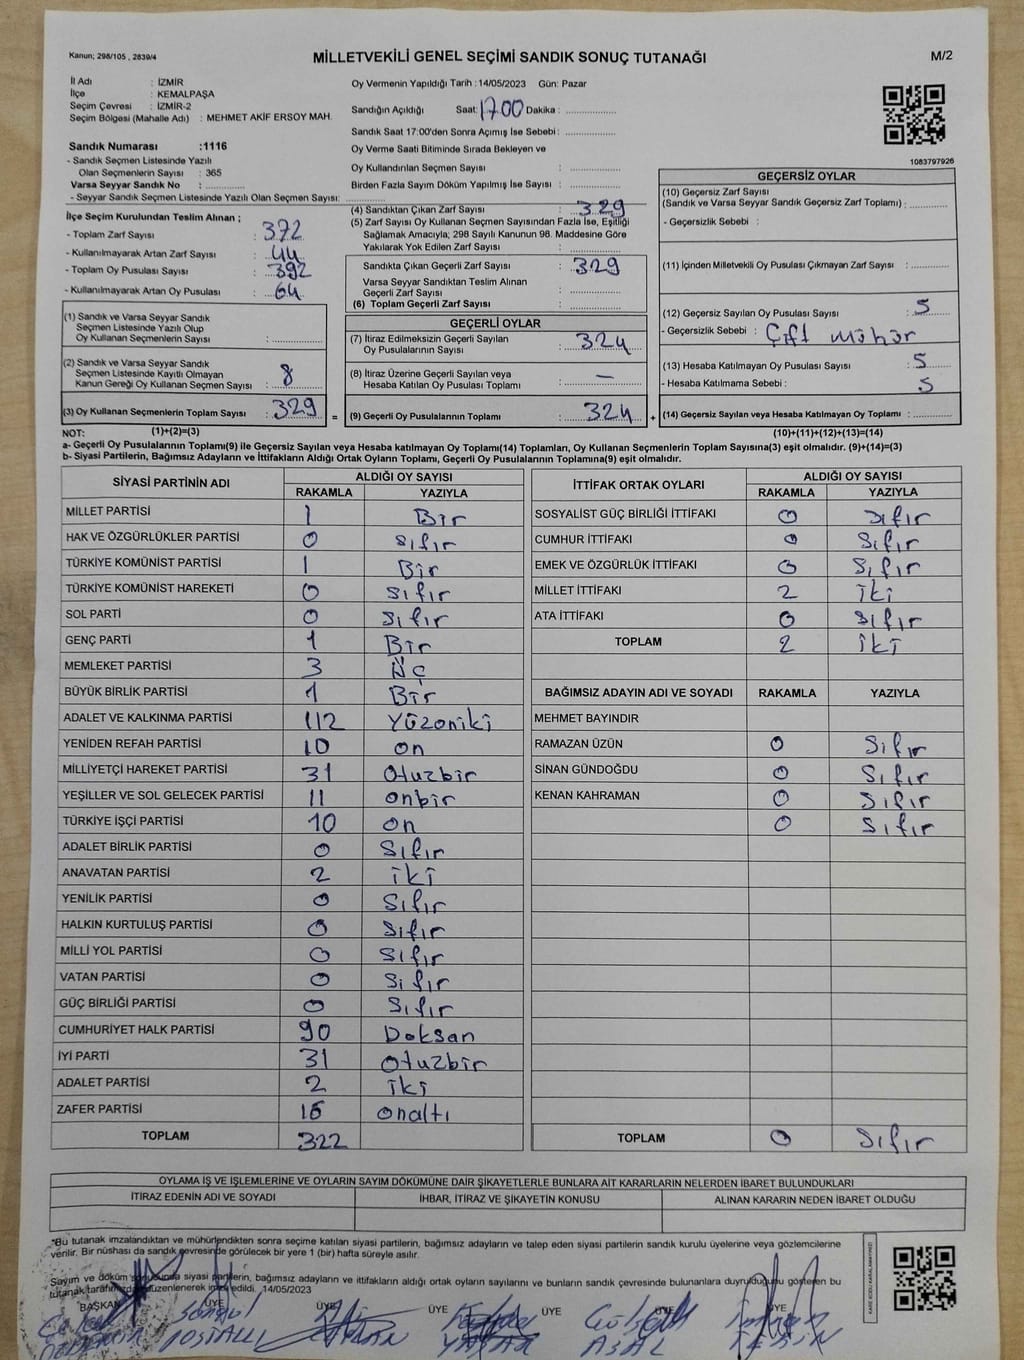 Kanun; 298/105 , 2839/4
MİLLETVEKİLİ GENEL SEÇİMİ SANDIK SONUÇ TUTANAĞI
M/2
İl Adı : İZMİR
İlçe : KEMALPAŞA
Seçim Çevresi : İZMİR-2
Seçim Bölgesi (Mahalle Adı) : MEHMET AKİF ERSOY MAH.
Sandık Numarası :1116
- Sandık Seçmen Listesinde Yazılı
Olan Seçmenlerin Sayısı : 365
Varsa Seyyar Sandık No :
- Seyyar Sandık Seçmen Listesinde Yazılı Olan Seçmen Sayısı:
Oy Vermenin Yapıldığı Tarih :14/05/2023 Gün: Pazar
Sandığın Açıldığı Saat: 17.00 Dakika :
Sandık Saat 17:00'den Sonra Açımış İse Sebebi :
Oy Verme Saati Bitiminde Sırada Bekleyen ve
Oy Kullandırılan Seçmen Sayısı :
Birden Fazla Sayım Döküm Yapılmış İse Sayısı :
1083797926
İlçe Seçim Kurulundan Teslim Alınan ;
- Toplam Zarf Sayısı : 372
- Kullanılmayarak Artan Zarf Sayısı : 44
- Toplam Oy Pusulası Sayısı : 392
- Kullanılmayarak Artan Oy Pusulası : 64
(1) Sandık ve Varsa Seyyar Sandık
Seçmen Listesinde Yazılı Olup
Oy Kullanan Seçmenlerin Sayısı :
(2) Sandık ve Varsa Seyyar Sandık
Seçmen Listesinde Kayıtlı Olmayan
Kanun Gereği Oy Kullanan Seçmen Sayısı : 8
(3) Oy Kullanan Seçmenlerin Toplam Sayısı : 329
(4) Sandıktan Çıkan Zarf Sayısı : 329
(5) Zarf Sayısı Oy Kullanan Seçmen Sayısından Fazla İse, Eşitliği
Sağlamak Amacıyla; 298 Sayılı Kanunun 98. Maddesine Göre
Yakılarak Yok Edilen Zarf Sayısı :
Sandıkta Çıkan Geçerli Zarf Sayısı : 329
Varsa Seyyar Sandıktan Teslim Alınan
Geçerli Zarf Sayısı :
(6) Toplam Geçerli Zarf Sayısı :
GEÇERLİ OYLAR
(7) İtiraz Edilmeksizin Geçerli Sayılan
Oy Pusulalarının Sayısı : 324
(8) İtiraz Üzerine Geçerli Sayılan veya
Hesaba Katılan Oy Pusulası Toplamı : —
= (9) Geçerli Oy Pusulalarının Toplamı : 324 +
GEÇERSİZ OYLAR
(10) Geçersiz Zarf Sayısı
(Sandık ve Varsa Seyyar Sandık Geçersiz Zarf Toplamı) :
- Geçersizlik Sebebi :
(11) İçinden Milletvekili Oy Pusulası Çıkmayan Zarf Sayısı :
(12) Geçersiz Sayılan Oy Pusulası Sayısı : 5
- Geçersizlik Sebebi : Çift mühür
(13) Hesaba Katılmayan Oy Pusulası Sayısı : 5
- Hesaba Katılmama Sebebi : 5
(14) Geçersiz Sayılan veya Hesaba Katılmayan Oy Toplamı :
NOT: (1)+(2)=(3)
(10)+(11)+(12)+(13)=(14)
a- Geçerli Oy Pusulalarının Toplamı(9) ile Geçersiz Sayılan veya Hesaba katılmayan Oy Toplamı(14) Toplamları, Oy Kullanan Seçmenlerin Toplam Sayısına(3) eşit olmalıdır. (9)+(14)=(3)
b- Siyasi Partilerin, Bağımsız Adayların ve İttifakların Aldığı Ortak Oyların Toplamı, Geçerli Oy Pusulalarının Toplamına(9) eşit olmalıdır.
SİYASİ PARTİNİN ADI ALDIĞI OY SAYISI
RAKAMLA YAZIYLA
MİLLET PARTİSİ 1 Bir
HAK VE ÖZGÜRLÜKLER PARTİSİ 0 sıfır
TÜRKİYE KOMÜNİST PARTİSİ 1 Bir
TÜRKİYE KOMÜNİST HAREKETİ 0 sıfır
SOL PARTİ 0 sıfır
GENÇ PARTİ 1 Bir
MEMLEKET PARTİSİ 3 Üç
BÜYÜK BİRLİK PARTİSİ 1 Bir
ADALET VE KALKINMA PARTİSİ 112 Yüzoniki
YENİDEN REFAH PARTİSİ 10 on
MİLLİYETÇİ HAREKET PARTİSİ 31 Otuzbir
YEŞİLLER VE SOL GELECEK PARTİSİ 11 onbir
TÜRKİYE İŞÇİ PARTİSİ 10 on
ADALET BİRLİK PARTİSİ 0 Sıfır
ANAVATAN PARTİSİ 2 iki
YENİLİK PARTİSİ 0 Sıfır
HALKIN KURTULUŞ PARTİSİ 0 Sıfır
MİLLİ YOL PARTİSİ 0 Sıfır
VATAN PARTİSİ 0 Sıfır
GÜÇ BİRLİĞİ PARTİSİ 0 Sıfır
CUMHURİYET HALK PARTİSİ 90 Doksan
İYİ PARTİ 31 Otuzbir
ADALET PARTİSİ 2 iki
ZAFER PARTİSİ 16 onaltı
TOPLAM 322
İTTİFAK ORTAK OYLARI ALDIĞI OY SAYISI
RAKAMLA YAZIYLA
SOSYALİST GÜÇ BİRLİĞİ İTTİFAKI 0 Sıfır
CUMHUR İTTİFAKI 0 Sıfır
EMEK VE ÖZGÜRLÜK İTTİFAKI 0 Sıfır
MİLLET İTTİFAKI 2 iki
ATA İTTİFAKI 0 Sıfır
TOPLAM 2 iki
BAĞIMSIZ ADAYIN ADI VE SOYADI RAKAMLA YAZIYLA
MEHMET BAYINDIR
RAMAZAN ÜZÜN 0 Sıfır
SİNAN GÜNDOĞDU 0 Sıfır
KENAN KAHRAMAN 0 Sıfır
0 Sıfır
TOPLAM 0 Sıfır
OYLAMA İŞ VE İŞLEMLERİNE VE OYLARIN SAYIM DÖKÜMÜNE DAİR ŞİKAYETLERLE BUNLARA AİT KARARLARIN NELERDEN İBARET BULUNDUKLARI
İTİRAZ EDENİN ADI VE SOYADI İHBAR, İTİRAZ VE ŞİKAYETİN KONUSU ALINAN KARARIN NEDEN İBARET OLDUĞU
"Bu tutanak imzalandıktan ve mühürlendikten sonra seçime katılan siyasi partilerin, bağımsız adayların ve talep eden siyasi partilerin sandık kurulu üyelerine veya gözlemcilerine
verilir. Bir nüshası da sandık çevresinde görülecek bir yere 1 (bir) hafta süreyle asılır.
Sayım ve döküm sonucunda siyasi partilerin, bağımsız adayların ve ittifakların aldığı ortak oyların sayılarını ve bunların sandık çevresinde bulunanlara duyrulduğunu gösteren bu
tutanak tarafımızdan düzenlenerek imza edildi. 14/05/2023
BAŞKAN ÜYE ÜYE ÜYE ÜYE ÜYE ÜYE